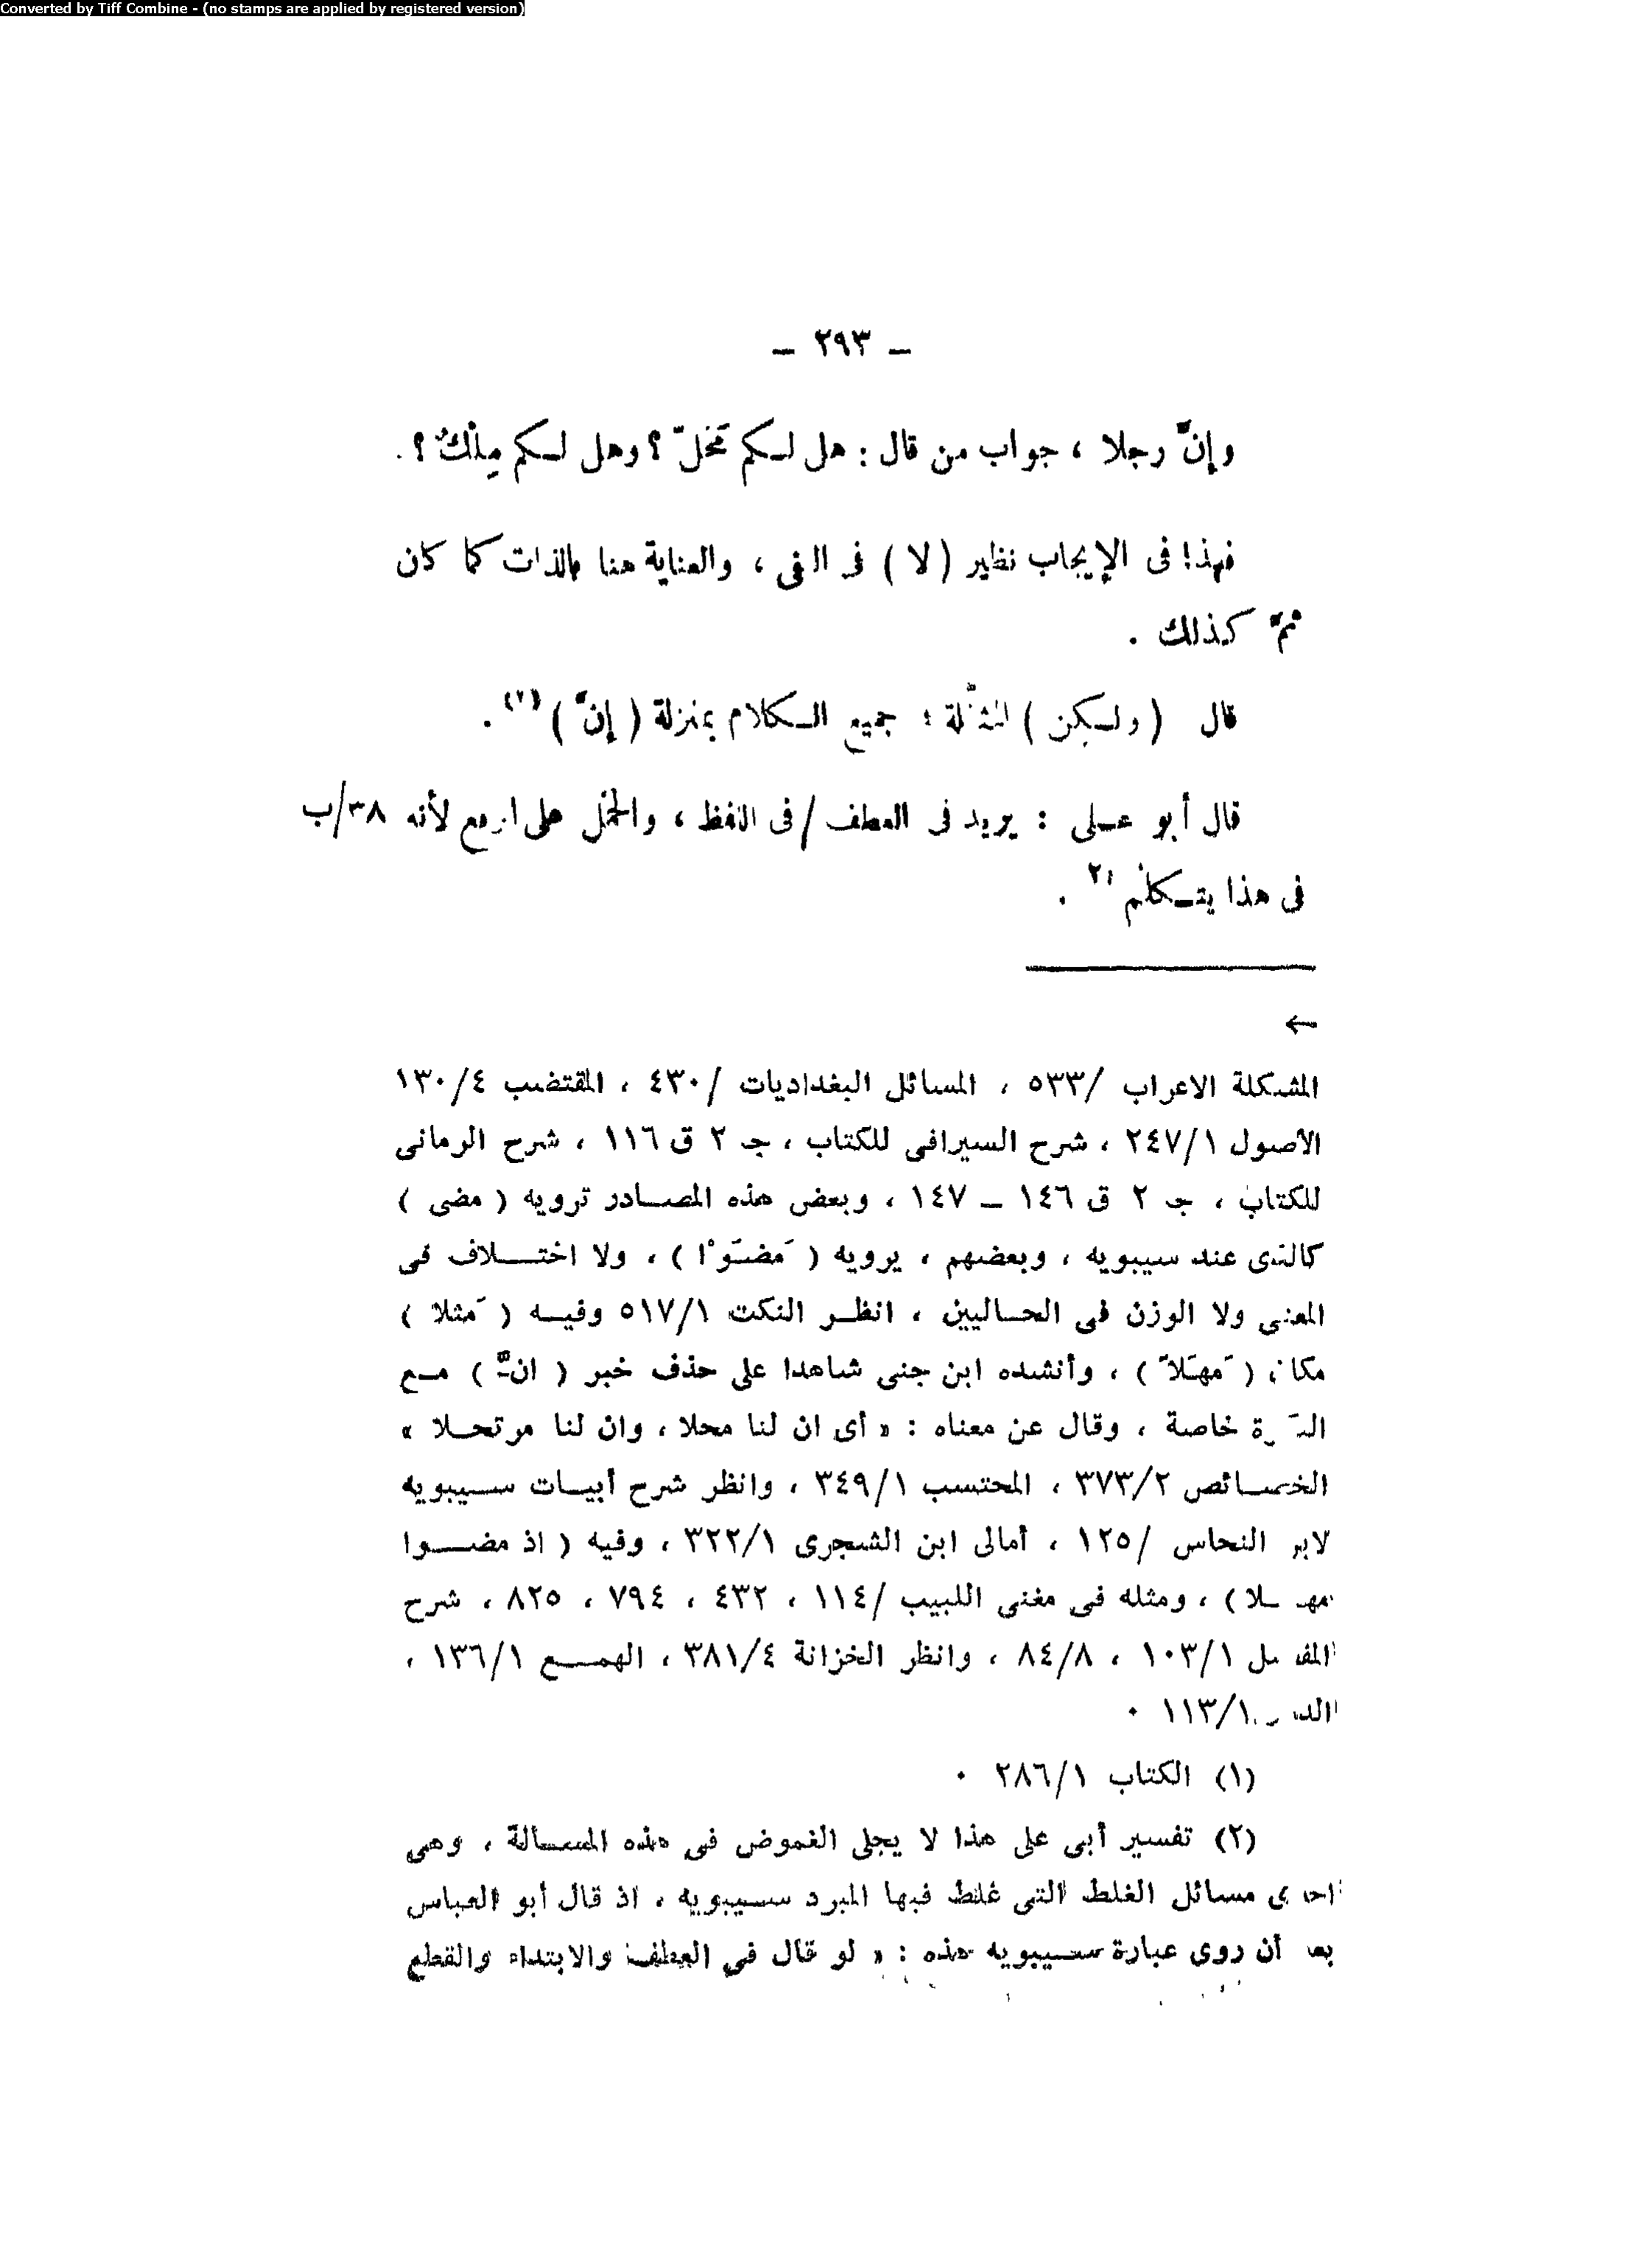 Converted by Tiff Combine - (no stamps are applied by registered version)
— ٢٩٣ —
وإنَّ رجلا ، جواب من قال : هل لكم محَلّ ؟ وهل لكم مِلْكٌ ؟ .
فهذا فى الإيجاب نظير ( لا ) فى النفى ، والعناية هنا بالذات كما كان
ثمَّ كذلك .
قال ( ولكن ) المثقَّلة : جميع الكلام بمنزلة ( إنَّ ) (١) .
قال أبو على : يريد فى العطف / فى اللفظ ، والحمْل على الرفع لأنه ٣٨/ب
فى هذا يتكلَّم ٢ .
←
المشكلة الاعراب /٥٣٣ ، المسائل البغداديات /٤٣٠ ، المقتضب ١٣٠/٤
الأصول ٢٤٧/١ ، شرح السيرافى للكتاب ، جـ ٢ ق ١١٦ ، شرح الرمانى
للكتاب ، جـ ٢ ق ١٤٦ ـ ١٤٧ ، وبعض هذه المصادر ترويه ( مضى )
كالذى عند سيبويه ، وبعضهم ، يرويه ( مَضَوْا ) ، ولا اختلاف فى
المعنى ولا الوزن فى الحاليين ، انظر النكت ٥١٧/١ وفيه ( مَثلا )
مكان ( مَهَلاً ) ، وأنشده ابن جنى شاهدا على حذف خبر ( انَّ ) مع
النكرة خاصة ، وقال عن معناه : « أى ان لنا محلا ، وان لنا مرتحلا »
الخصائص ٣٧٣/٢ ، المحتسب ٣٤٩/١ ، وانظر شرح أبيات سيبويه
لابن النحاس /١٢٥ ، أمالى ابن الشجرى ٣٢٢/١ ، وفيه ( اذ مضوا
مهلا ) ، ومثله فى مغنى اللبيب /١١٤ ، ٤٣٢ ، ٧٩٤ ، ٨٢٥ ، شرح
المفصل ١٠٣/١ ، ٨٤/٨ ، وانظر الخزانة ٣٨١/٤ ، الهمع ١٣٦/١ ،
١١٣/١ ٠
(١) الكتاب ٢٨٦/١ ٠
(٢) تفسير أبى على هذا لا يجلى الغموض فى هذه المسالة ، وهى
احدى مسائل الغلط التى غلط فيها المبرد سيبويه ، اذ قال أبو العباس
بعد أن روى عبارة سيبويه هذه : « لو قال فى العطف والابتداء والقطع